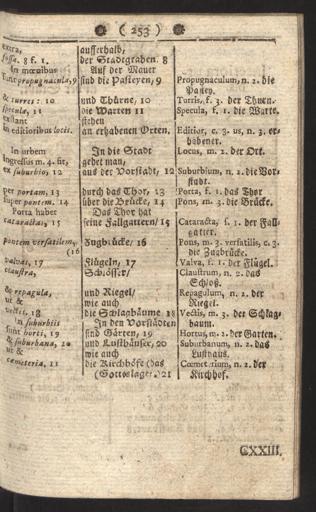 ( 253 )
extra,
fossa. 8 f. 1.
In mœnibus
sunt propugnacula, 9
& turres: 10
specula, 11
exstant
in editioribus locis.
In urbem
ingressus m. 4. fit,
ex suburbio, 12
per portam, 13
super pontem. 14
Porta habet
cataractas, 15
pontem versatilem, (16
valvas, 17
claustra,
& repagula,
ut &
vectes. 18
In suburbiis
sunt horti, 19
& suburbana, 20
ut &
cœmeteria, 21
ausserhalb,
der Stadtgraben. 8
Auf der Mauer
sind die Pasteyen, 9
und Thürne, 10
die Warten 11
stehen
an erhabenen Orten.
In die Stadt
gehet man,
aus der Vorstadt, 12
durch das Thor, 13
über die Brücke, 14
Das Thor hat
seine Fallgattern/ 15
Zugbrücke/ 16
Flügeln, 17
Schlösser/
und Riegel/
wie auch
die Schlagbäume 18
In den Vorstädten
sind Gärten, 19
und Lusthäuser, 20
wie auch
die Kirchhöfe (das
(Gotteslager.) 21
Propugnaculum, n. 2. die
Pastey.
Turris, f. 3. der Thurn.
Specula, f. 1. die Warte.
Editior, c. 3. us, n. 3. erhabener.
Locus, m. 2. der Ort.
Suburbium, n. 2. die Vorstadt.
Porta, f. 1. das Thor
Pons, m. 3. die Brücke.
Cataracta, f. 1. der Fallgatter.
Pons, m. 3. versatilis, c. 3.
die Zugbrücke.
Valva, f. 1. der Flügel.
Claustrum, n. 2. das
Schloß.
Repagulum, n. 2. der
Riegel.
Vectis, m. 3. der Schlagbaum.
Hortus, m. 2. der Garten.
Suburbanum, n. 2. das
Lusthaus.
Cœmeterium, n. 2. der
Kirchhof.
CXXIII.